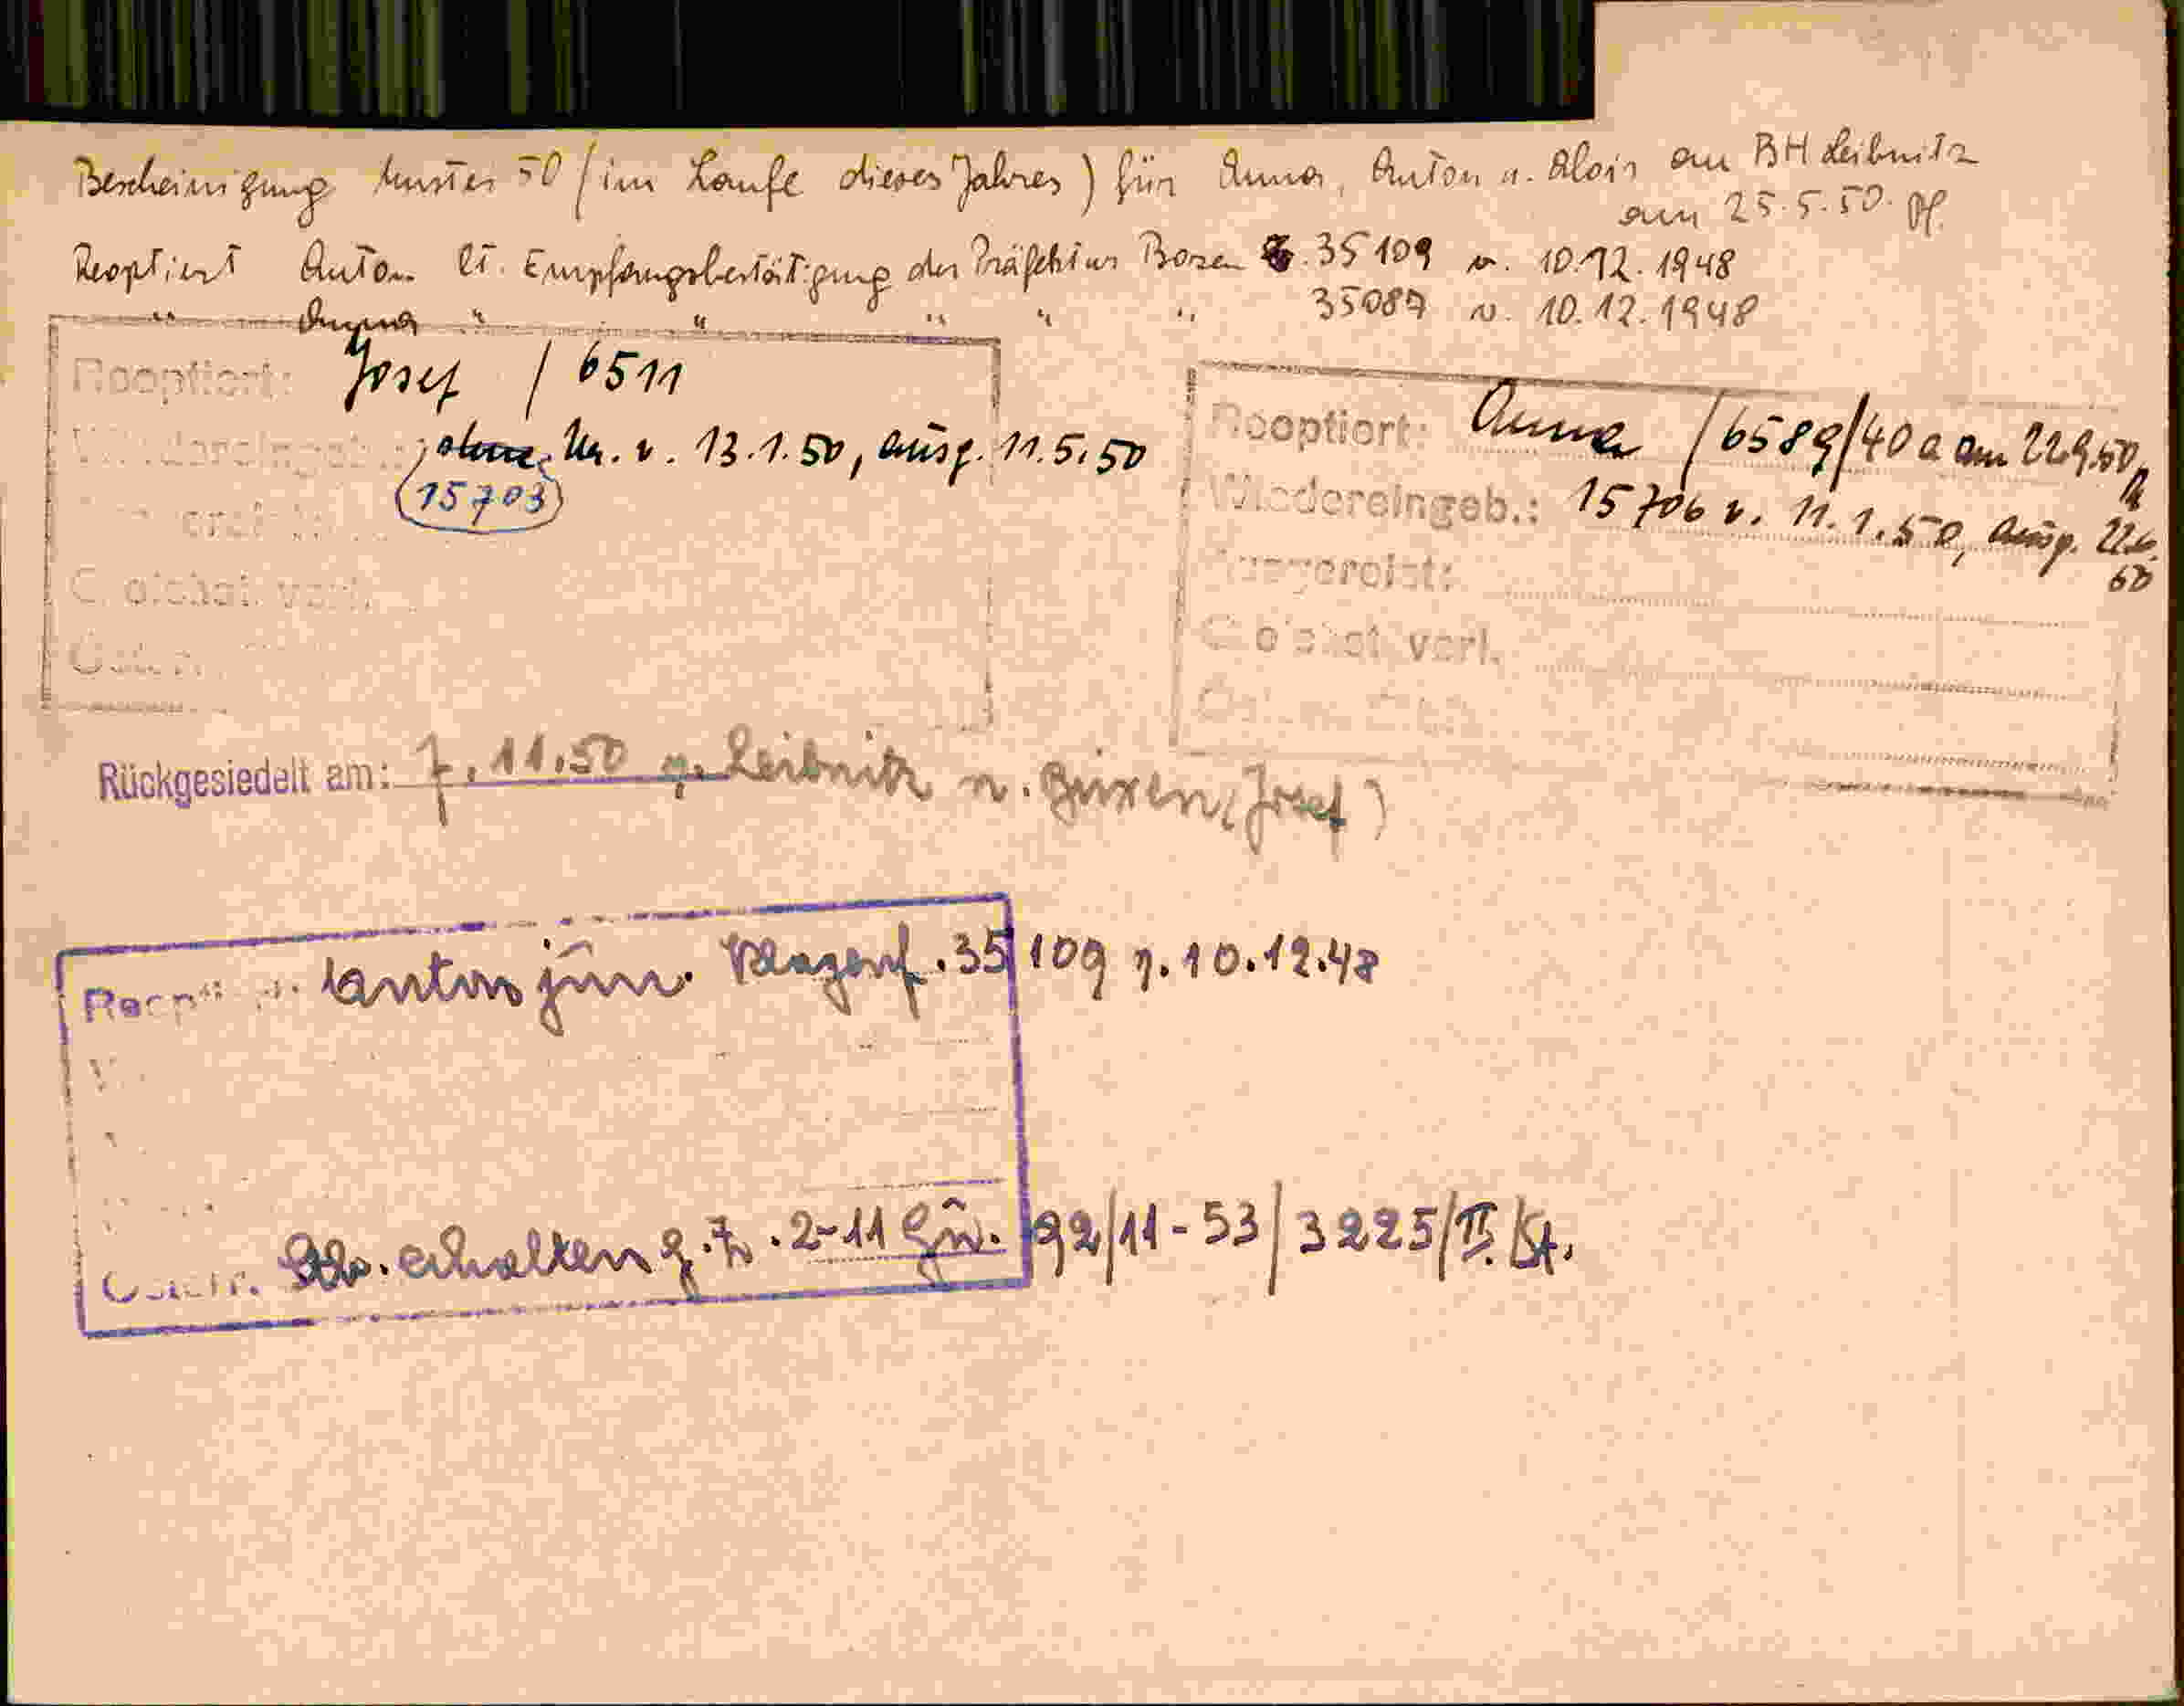 Bescheinigung Muster 50 (im Laufe dieses Jahres) für Anna, Anton u. Alois an BH Leibnitz
am 25.5.50.
Reoptiert Anton lt. Empfangsbestätigung der Präfektur Bozen 35109 v. 10.12.1948
" Anna " " " " " 35087 v. 10.12.1948
Reoptiert: Josef / 6511
Wiedereingeb.: ohne Nr. v. 13.1.50, ausg. 11.5.50
15703
Rooptiert: Anna / 6589/40 a am 22.9.50
Wiedereingeb.: 15706 v. 11.1.50, ausg. 22.6.
50
Ausgereist:
verl.
Rückgesiedelt am: 7.11.50 v. Leibnitz n. Brixen (Josef)
Anton jun. Klagenf. 35109 v. 10.12.48
erhalten g. Z. 2-11 92/11-53/3225/II/St.